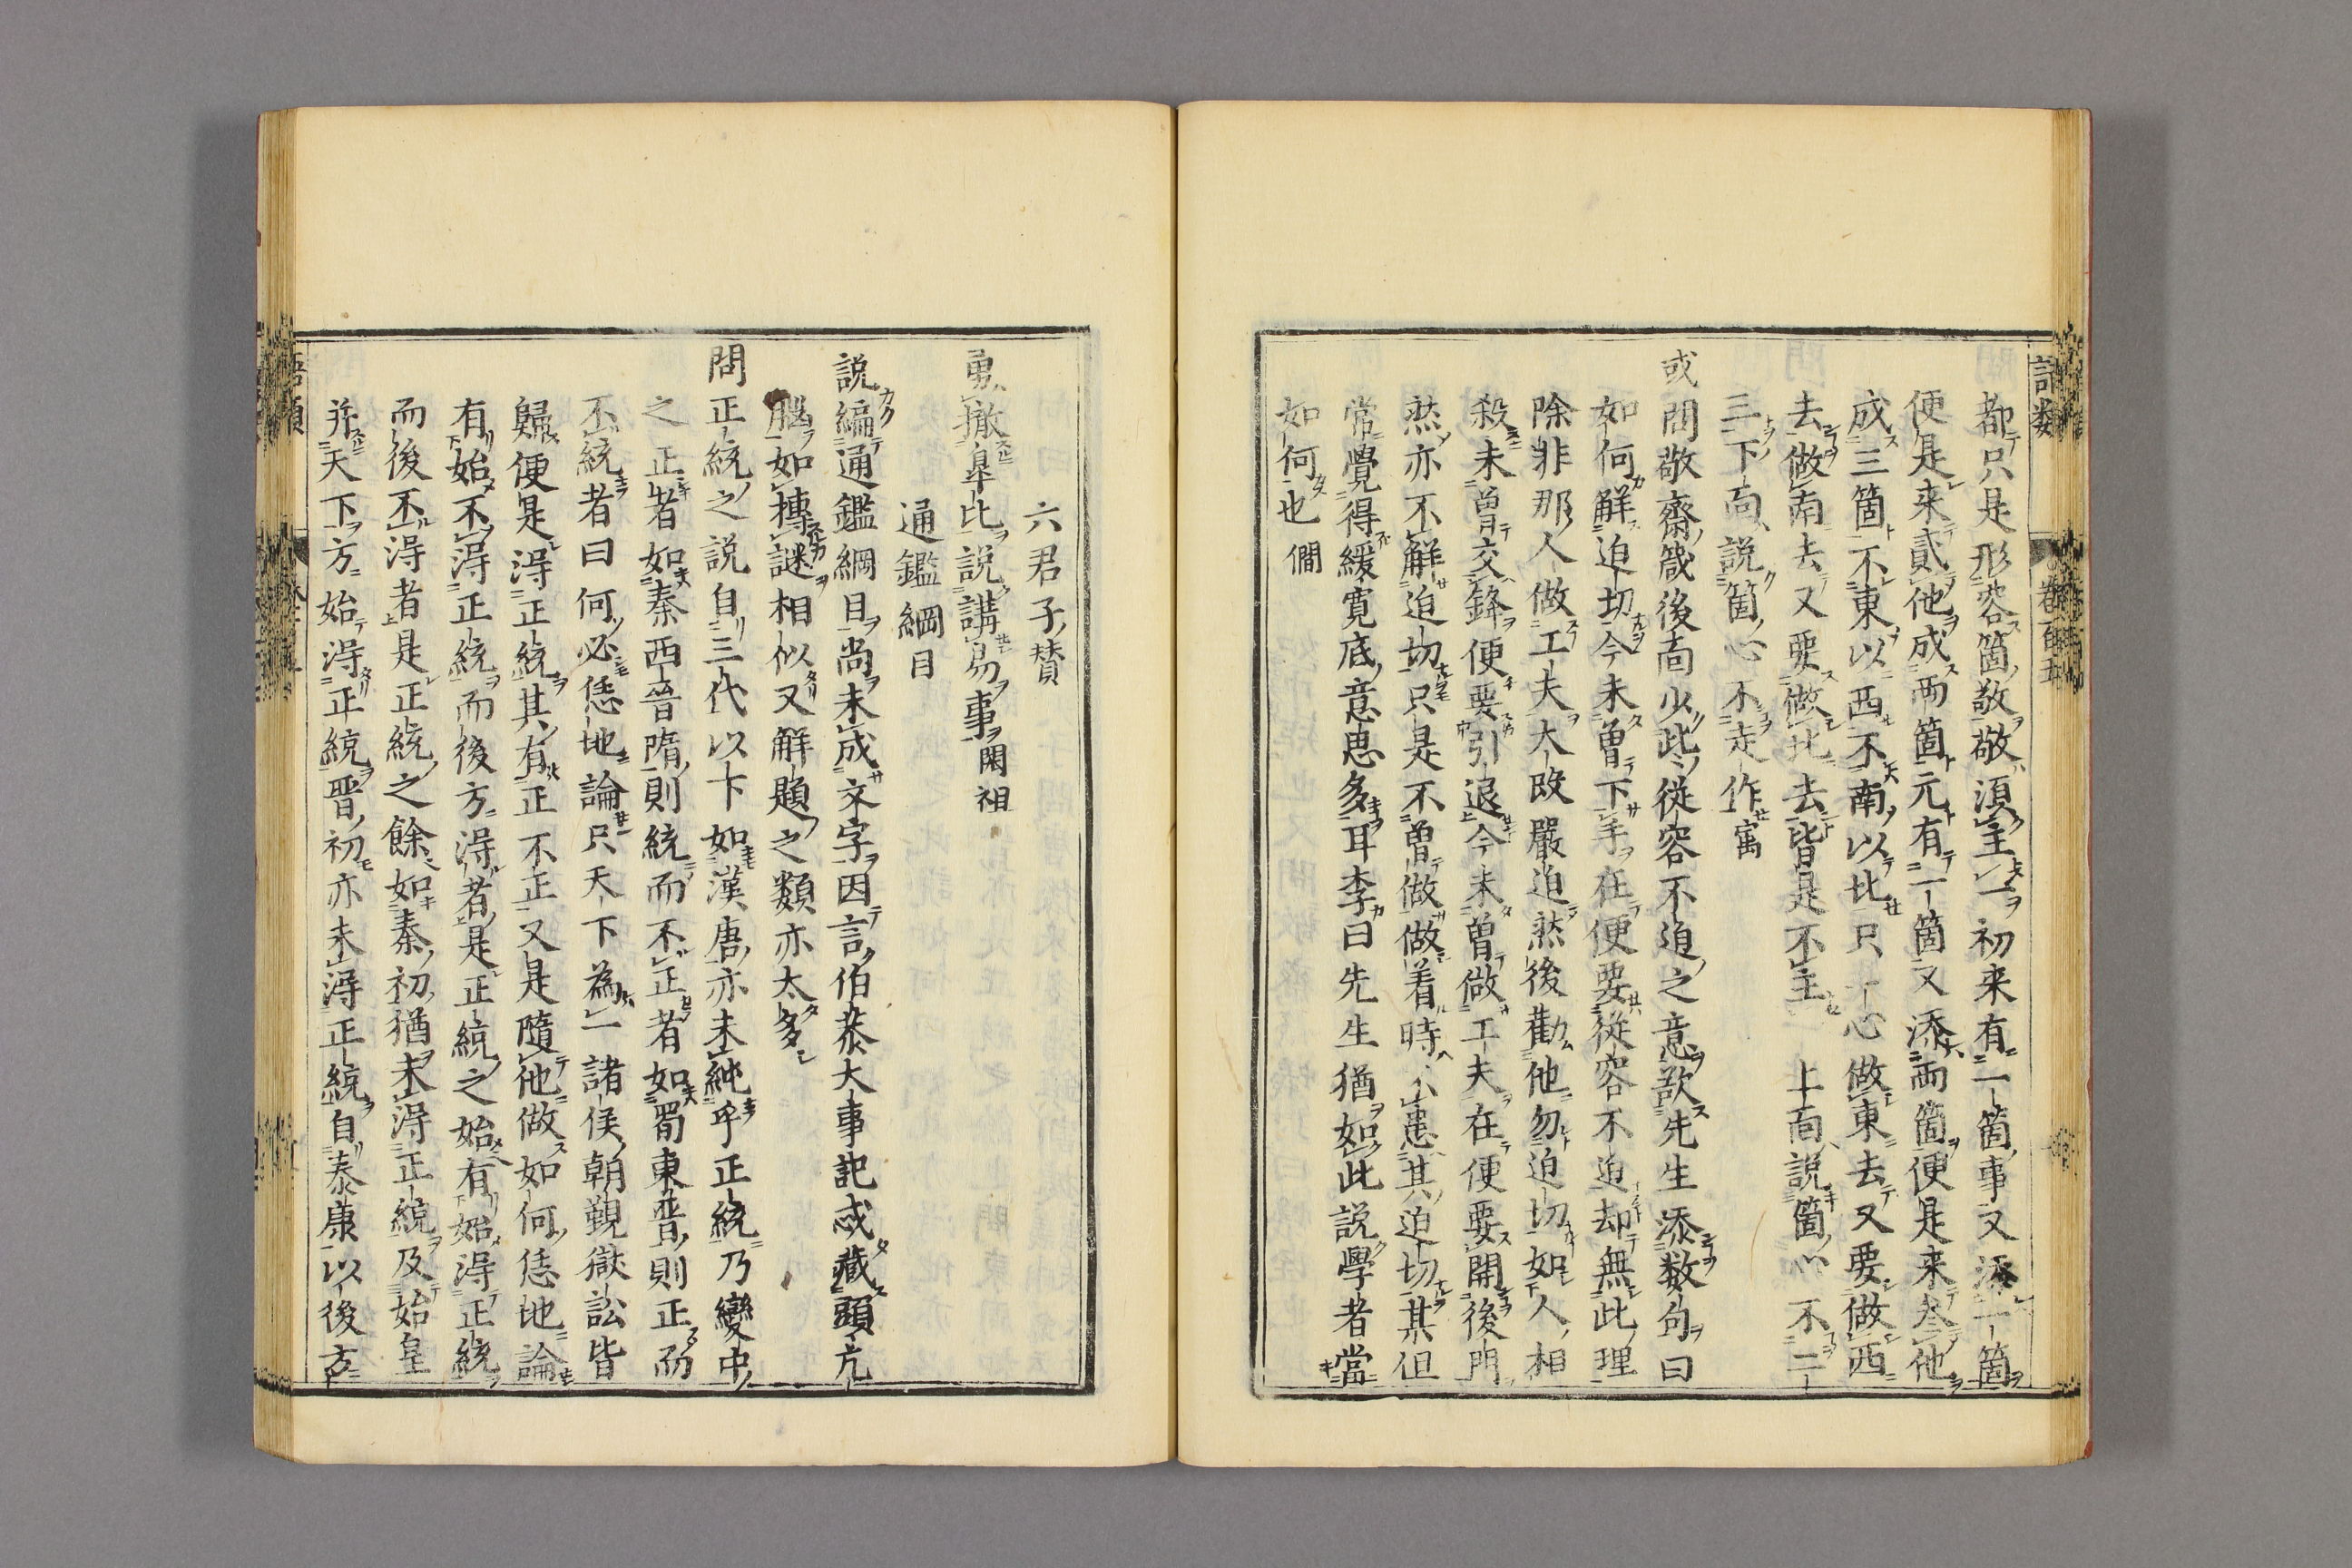 都只是形容箇敬敬須主一初来有一箇事又添一箇
便是来貳他成兩箇元有一箇又添兩箇便是来叄他
成三箇不東以西不南以北只一心做東去又要做西
去做南去又要做北去皆是不主一上面說箇心不二
三下面說箇心不走作㝢
或問敬齋箴後面少此從容不迫之意欲先生添数句曰
如何解迫切今未曽下手在便要從容不迫却無此理
除非那人做工夫大段嚴迫然後勸他勿迫切如人相
殺未曽交鋒便要引退今未曽做工夫在便要開後門
然亦不解迫切只是不曽做做着時不患其迫切某但
常覺得緩寛底意思多耳李曰先生猶如此說學者當
如何也僩
六君子賛
勇撤皐比說講易事閎祖
通鑑綱目
說編通鑑綱目尚未成文字因言伯恭大事記忒藏頭亢
腦如摶謎相似又解題之類亦太多
問正統之說自三代以下如漢唐亦未純乎正統乃變中
之正者如秦西晉隋則統而不正者如蜀東晉則正而
不統者曰何必恁地論只天下為一諸侯朝覲獄訟皆
歸便是得正統其有正不正又是隨他做如何恁地論
有始不得正統而後方得者是正統之始有始得正統
而後不得者是正統之餘如秦初猶未得正統及始皇
并天下方始得正統晋初亦未得正統自泰康以後方